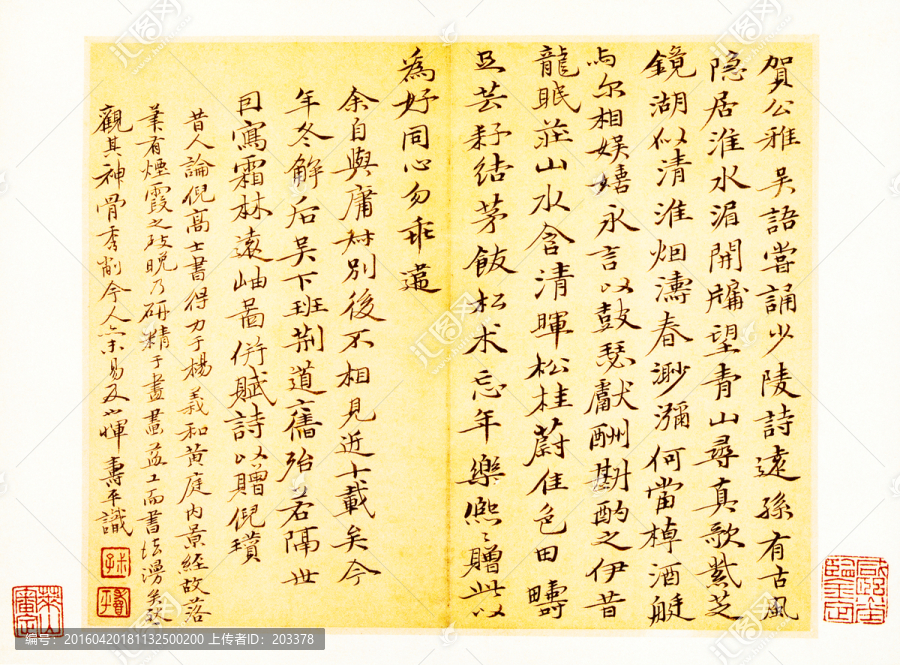 賀公雅吳語嘗誦少陵詩遠孫有古風
隐居淮水湄開牖望青山尋真歌紫芝
鏡湖似清淮烟濤春渺瀰何當棹酒艇
与尔相娱嬉永言以鼓瑟獻酬斟酌之伊昔
龍眠莊山水含清暉松桂蔚佳色田疇
足芸耔结茅飯松术忘年樂熙〻贈此以
為好同心勿乖違
余自與庸對别後不相見近十載矣今
年冬解后吴下班荆道舊殆若隔世
因寫霜林遠岫啚併賦詩以贈倪瓚
昔人論倪高士書得力于楊羲和黄庭内景經故落
筆有煙霞之致晚乃研精于畫畫益工而書
觀其神骨秀削今人未易及也惲壽平識
编号：20160420181132500200 上传者ID：203378